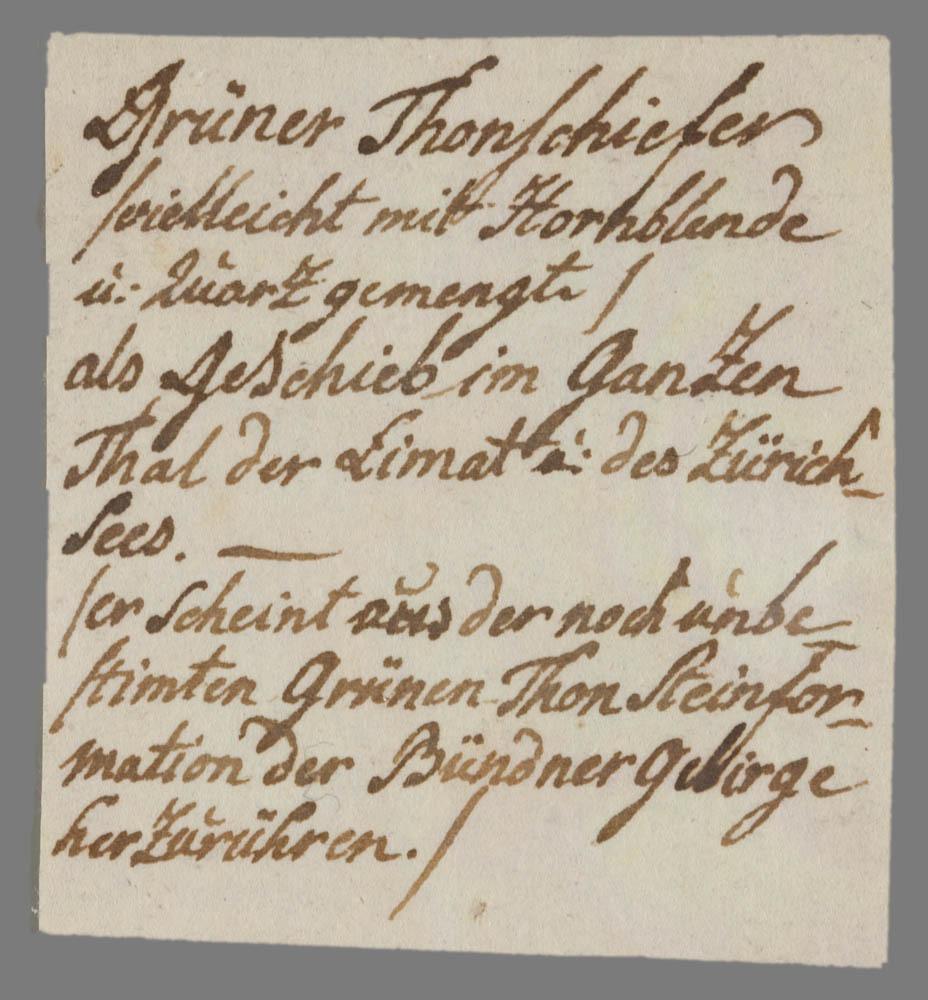 Grüner Thonschiefer
/vielleicht mit Hornblende
ŭ: Quarz gemengt /
als Geschieb im Ganzen
Thal der Limat ŭ: des Zürich-
sees. —
/er scheint aŭs der noch ŭnbe-
stimten Grünen Thon Steinfor-
mation der Bündner Gebirge
herzŭrühren. /